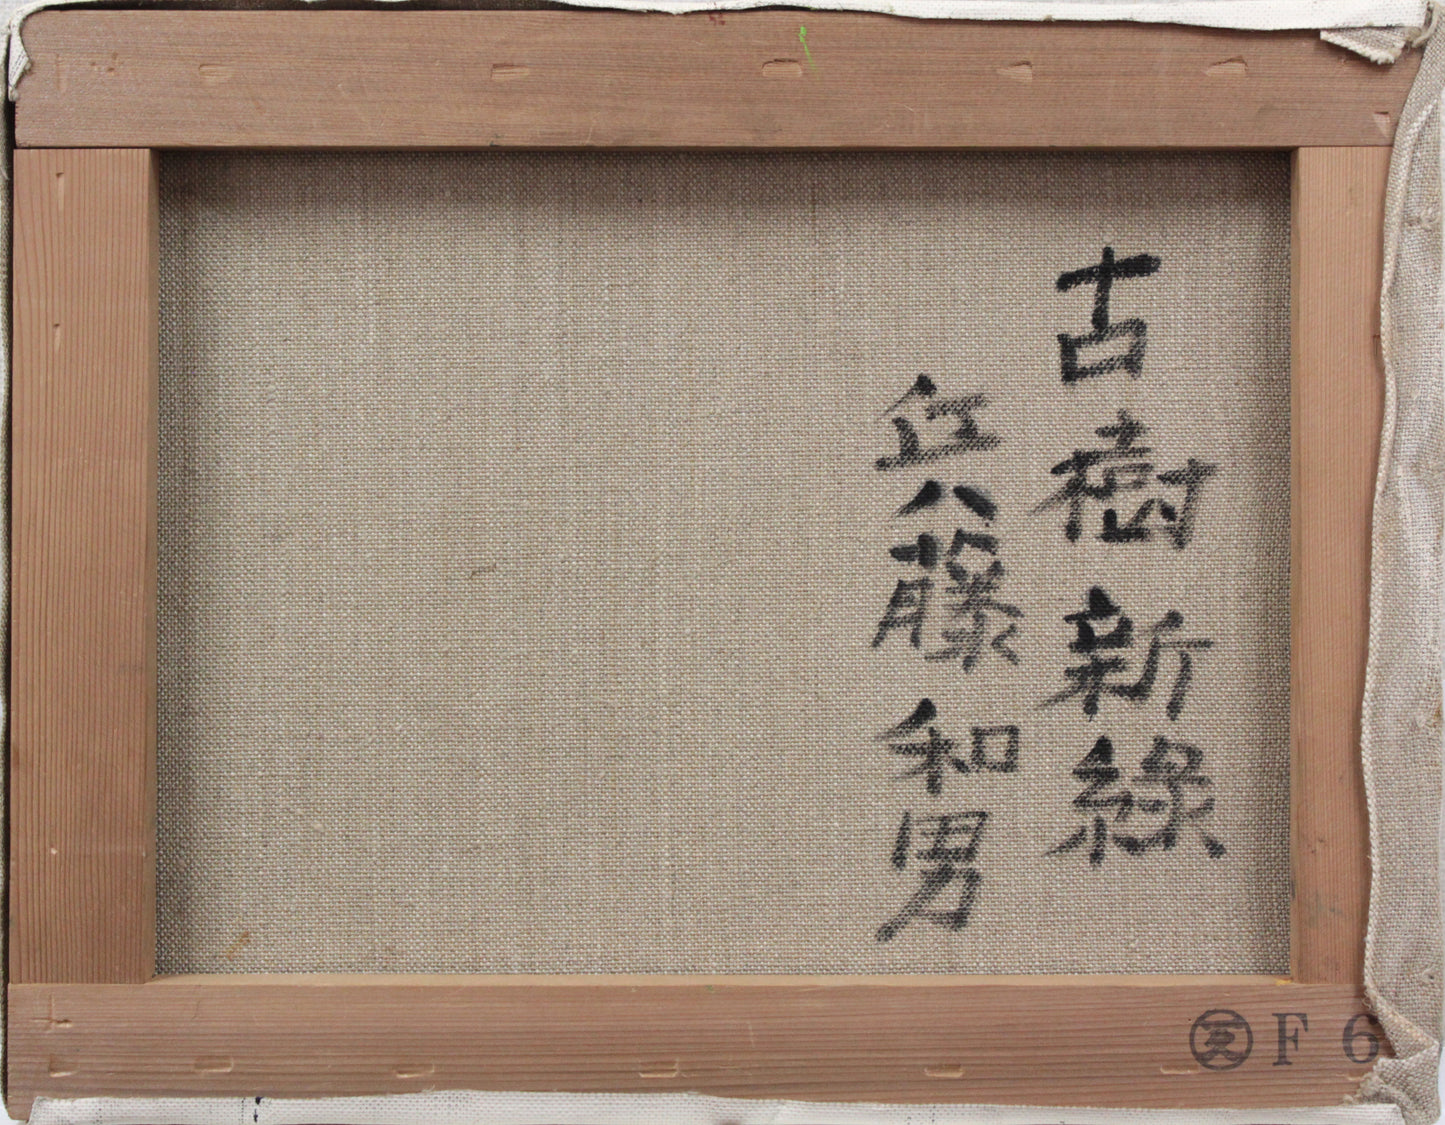 古樹新緑
兵藤和男
F 6